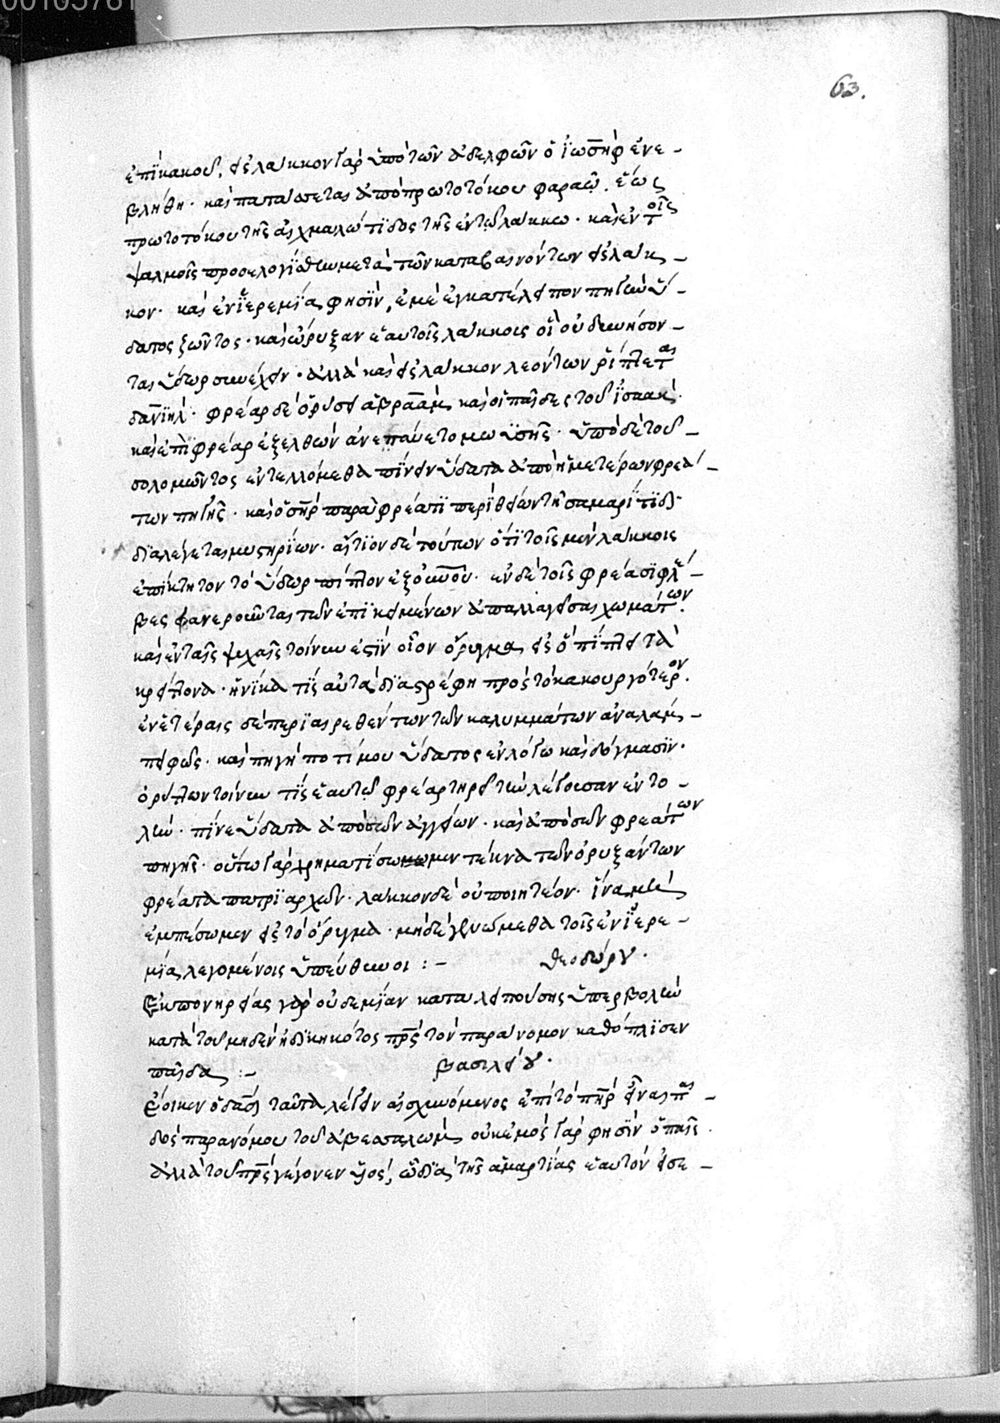 00105761
63.
ἐπὶ κακοῦ, εἰς λάκκον γὰρ ὑπὸ τῶν ἀδελφῶν ὁ ἰωσὴφ ἐνε-
βλήθη· καὶ πατάσσεται ἀπὸ πρωτοτόκου φαραὼ, ἕως
πρωτοτόκου τῆς αἰχμαλώτιδος τῆς ἐν τῷ λάκκω· καὶ ἐν τοῖς
ψαλμοῖς προσελογίσθην μετὰ τῶν καταβαινόντων εἰς λάκ-
κον· καὶ ἐν ἱερεμία φησὶν, ἐμὲ ἐγκατέλειπον πηγὴν ὕ-
δατος ζῶντος· καὶ ὤρυξαν ἑαυτοῖς λάκκοις οἳ οὐ δυνήσον-
ται ὕδωρ συνέχειν· ἀλλὰ καὶ εἰς λάκκον λεόντων ῥίπτεται
δανιὴλ· φρέαρ δὲ ὄρυσει ἀβραὰμ καὶ οἱ παῖδες τοῦ ἰσαακ·
καὶ ἐπὶ φρέαρ ἐξελθὼν ἀνεπαύετο μωϋσῆς· ὑπὸ δὲ τοῦ
σολομῶντος ἐντελλόμεθα πίνειν ὕδατα ἀπὸ ἡμετέρων φρεά-
των πηγῆς· καὶ ὁ σὴρ παρὰ φρέατι περὶ θείων τῇ σαμαρίτιδι
διαλέγεται μυστηρίων· αἴτιον δὲ τούτων ὅτι τοῖς μὲν λάκκοις
ἐπίκτητον τὸ ὕδωρ πίπτον ἐξ οὐνοῦ· ἐν δὲ τοῖς φρέασι φλέ-
βες φανεροῦνται τῶν ἐπικειμένων ἀπαλλαγεῖσαι χωμάτων·
καὶ ἐν ταῖς ψυχαῖς τοίνυν ἐστὶν οἷον ὄρυγμα εἰς ὃ πίπτει τὰ
κρείττονα· ἡνίκα τίς αὐτὰ διαστρέφη πρὸς τὸ κακουργότερον.
ἐν ἑτέραις δὲ περιαιρεθέντων τῶν καλυμμάτων ἀναλάμ-
πει φῶς· καὶ πηγὴ ποτίμου ὕδατος ἐν λόγω καὶ δόγμασιν·
ὀρύττων τοίνυν τίς ἑαυτῷ φρέαρ τηρεῖ τὴν λέγουσαν ἐντο-
λὴν· πῖνε ὕδατα ἀπὸ σῶν ἀγγείων· καὶ ἀπὸ σῶν φρεάτων
πηγῆς· οὕτω γὰρ χρηματίσωμεν τέκνα τῶν ὀρυξάντων
φρέατα πατριαρχῶν· λάκκον δὲ οὐ ποιητέον· ἵνα μὴ
ἐμπέσωμεν εἰς τὸ ὄρυγμα· μηδὲ γενώμεθα τοῖς ἐν ἱερε-
μία λεγομένοις ὑπεύθυνοι :- θεοδώρου·
Ἐκ πονηρίας γὰρ οὐδεμίαν καταλειπούσης ὑπερβολὴν
κατὰ τοῦ μηδὲν ἠδικηκότος πρς τὸν παράνομον καθόπλισεν
παῖδα :- βασιλείου·
Ἔοικεν ὁ δαδ ταῦτα λέγειν αἰσχυνόμενος ἐπὶ τὸ πὴρ εἶναι παι-
δὸς παρανόμου τοῦ ἀβεσσαλωμ, οὐκ ἐμὸς γὰρ φησὶν ὁ παῖς·
ἀλλὰ τοῦ πρς γέγονεν υἱὸς, ᾧ διὰ τῆς ἁμαρτίας ἑαυτὸν εἰσε-